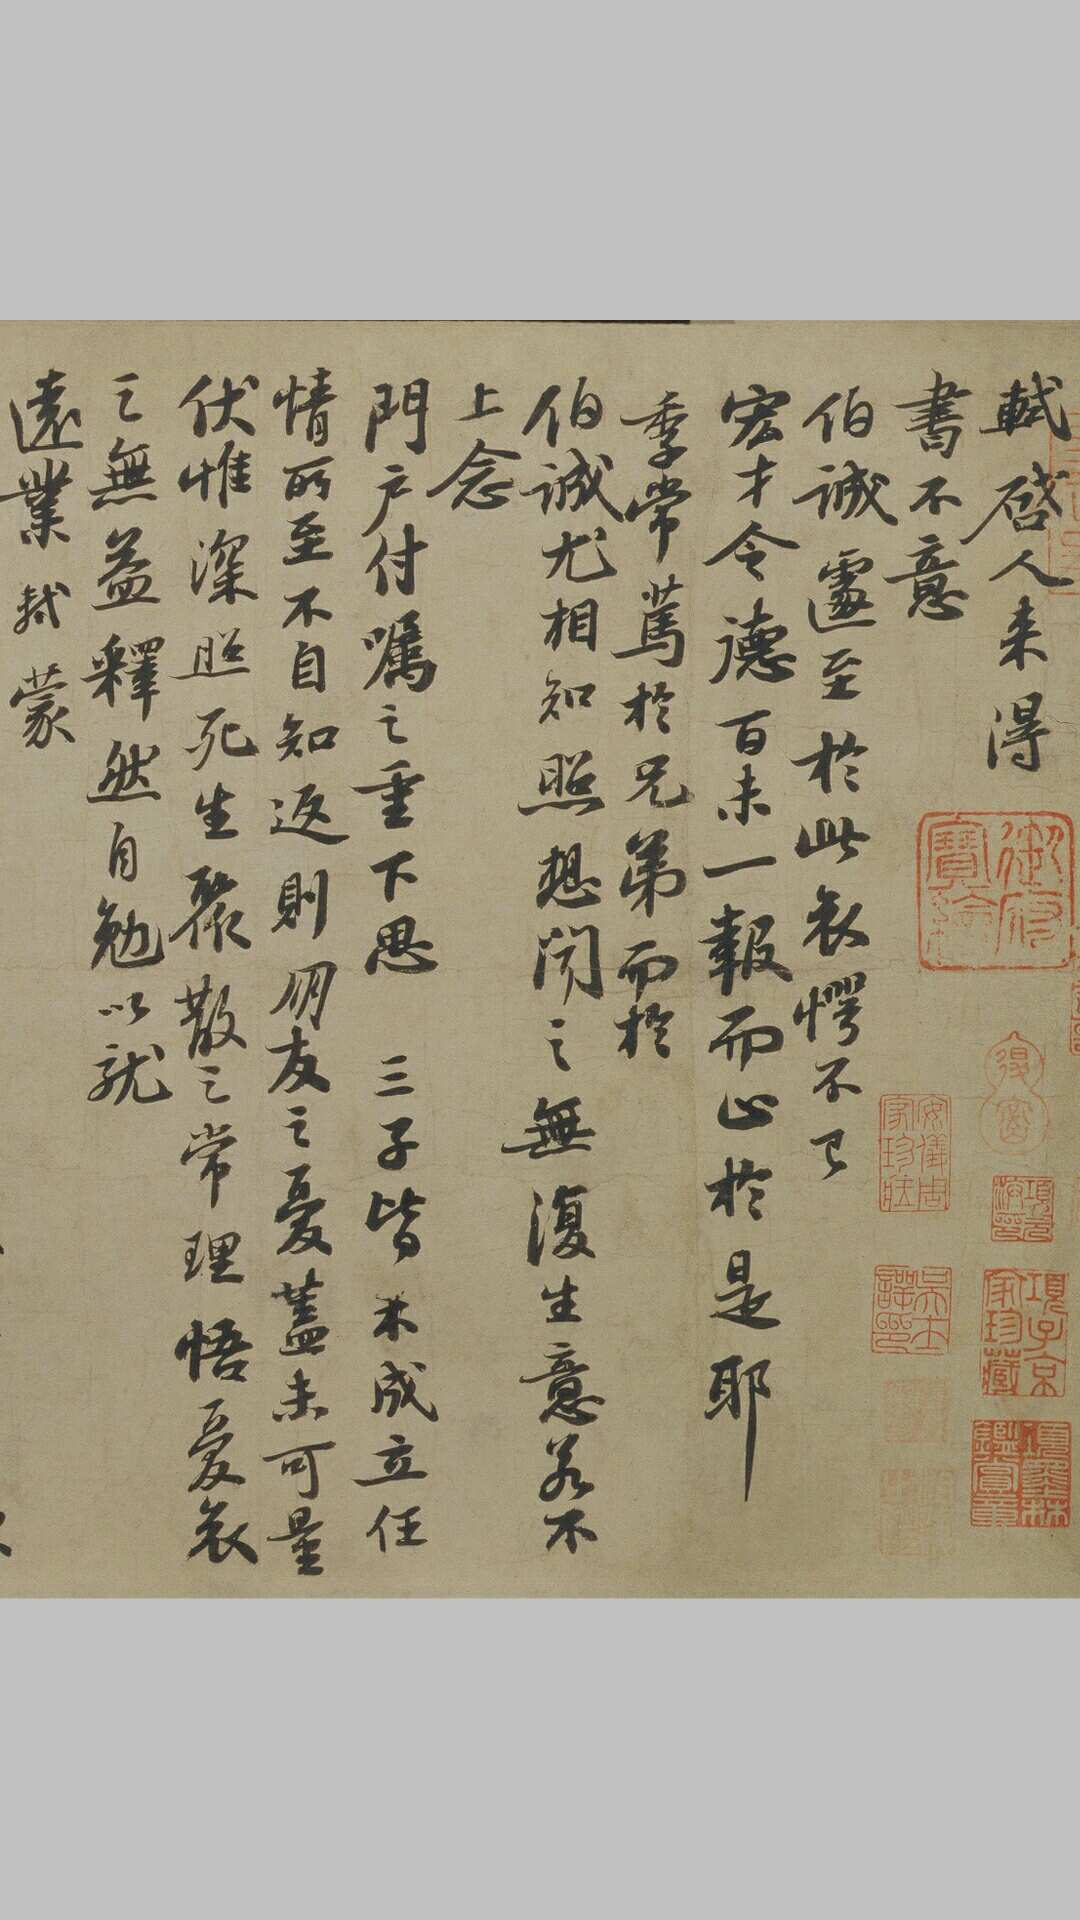 軾啓人來得
書不意
伯誠遽至於此哀愕不已
宏才令德百未一報而止於是耶
季常篤於兄弟而於
伯誠尤相知照想聞之無復生意若不
上念
門戶付囑之重下思三子皆未成立任
情所至不自知返則朋友之憂蓋未可量
伏惟深照死生聚散之常理悟憂哀
之無益釋然自勉以就
遠業軾蒙
御府寶繪
安儀周家珍藏
項子京家珍藏
項墨林鑑賞章